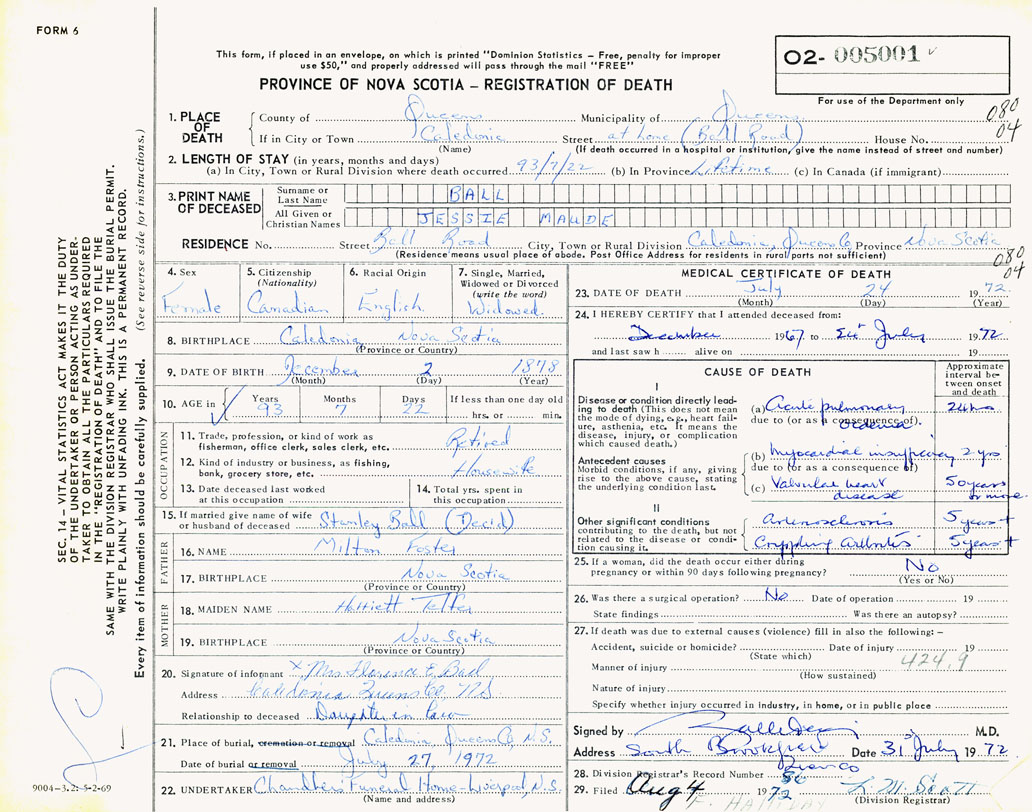 FORM 6
This form, if placed in an envelope, on which is printed "Dominion Statistics – Free, penalty for improper
use $50," and properly addressed will pass through the mail "FREE"
O2- 005001
PROVINCE OF NOVA SCOTIA – REGISTRATION OF DEATH
For use of the Department only
080
04
1. PLACE OF DEATH
County of Queens Municipality of Queens
If in City or Town Caledonia Street at home (Ball Road) House No.
(Name) (If death occurred in a hospital or institution, give the name instead of street and number)
2. LENGTH OF STAY (in years, months and days)
(a) In City, Town or Rural Division where death occurred 93/7/22 (b) In Province Lifetime (c) In Canada (if immigrant)
3. PRINT NAME OF DECEASED
Surname or Last Name BALL
All Given or Christian Names JESSIE MAUDE
RESIDENCE No. Street Ball Road City, Town or Rural Division Caledonia, Queens Co Province Nova Scotia
(Residence means usual place of abode. Post Office Address for residents in rural parts not sufficient)
080
04
4. Sex Female
5. Citizenship (Nationality) Canadian
6. Racial Origin English
7. Single, Married, Widowed or Divorced (write the word) Widowed
8. BIRTHPLACE Caledonia Nova Scotia
(Province or Country)
9. DATE OF BIRTH December 2 1878
(Month) (Day) (Year)
10. AGE in Years 93 Months 7 Days 22 If less than one day old
hrs. or min.
OCCUPATION
11. Trade, profession, or kind of work as
fisherman, office clerk, sales clerk, etc. Retired
12. Kind of industry or business, as fishing,
bank, grocery store, etc. Housewife
13. Date deceased last worked
at this occupation
14. Total yrs. spent in
this occupation
15. If married give name of wife
or husband of deceased Stanley Ball (Decid)
FATHER
16. NAME Milton Foster
17. BIRTHPLACE Nova Scotia
(Province or Country)
MOTHER
18. MAIDEN NAME Harriett Telfer
19. BIRTHPLACE Nova Scotia
(Province or Country)
20. Signature of informant x Mrs Florence E Ball
Address Caledonia Queens Co, NS
Relationship to deceased Daughter in law
21. Place of burial, cremation or removal Caledonia, Queens Co, N.S.
Date of burial or removal July 27, 1972
22. UNDERTAKER Chandlers Funeral Home-Liverpool, N.S.
(Name and address)
MEDICAL CERTIFICATE OF DEATH
23. DATE OF DEATH July 24 1972
(Month) (Day) (Year)
24. I HEREBY CERTIFY that I attended deceased from:
December 1967 to July 1972
and last saw h alive on 19
CAUSE OF DEATH
Approximate interval between onset and death
I
Disease or condition directly leading to death (This does not mean the mode of dying, e.g., heart failure, asthenia, etc. It means the disease, injury, or complication which caused death.)
(a) Acute pulmonary oedema 24 hrs
due to (or as a consequence of).
Antecedent causes
Morbid conditions, if any, giving rise to the above cause, stating the underlying condition last.
(b) Myocardial insufficiency 2 yrs
due to (or as a consequence of)
(c) Valvular heart disease 50 years or more
II
Other significant conditions
contributing to the death, but not related to the disease or condition causing it.
Arteriosclerosis 5 years +
Crippling Arthritis 5 years +
25. If a woman, did the death occur either during
pregnancy or within 90 days following pregnancy? No
(Yes or No)
26. Was there a surgical operation? No Date of operation 19
State findings Was there an autopsy?
27. If death was due to external causes (violence) fill in also the following: –
Accident, suicide or homicide? Date of injury 19
(State which)
424.9
Manner of injury
(How sustained)
Nature of injury
Specify whether injury occurred in industry, in home, or in public place
Signed by M.D.
Address South Brookfield Date 31 July 1972
28. Division Registrar's Record Number
29. Filed Aug 4 1972 L. M. Scott
(Division Registrar)
SEC. 14 – VITAL STATISTICS ACT MAKES IT THE DUTY
OF THE UNDERTAKER OR PERSON ACTING AS UNDER-
TAKER TO OBTAIN ALL THE PARTICULARS REQUIRED
IN THE "REGISTRATION OF DEATH" AND TO FILE THE
SAME WITH THE DIVISION REGISTRAR WHO SHALL ISSUE THE BURIAL PERMIT.
WRITE PLAINLY WITH UNFADING INK. THIS IS A PERMANENT RECORD.
Every item of information should be carefully supplied. (See reverse side for instructions.)